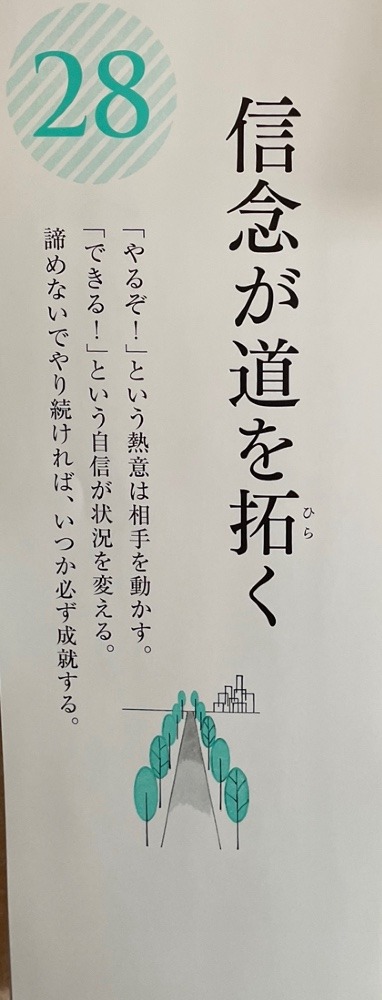 28
信念が道を拓く
ひら
「やるぞ！」という熱意は相手を動かす。
「できる！」という自信が状況を変える。
諦めないでやり続ければ、いつか必ず成就する。